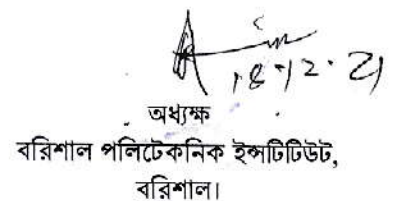 18-12-21
অধ্যক্ষ
বরিশাল পলিটেকনিক ইন্সটিটিউট,
বরিশাল।